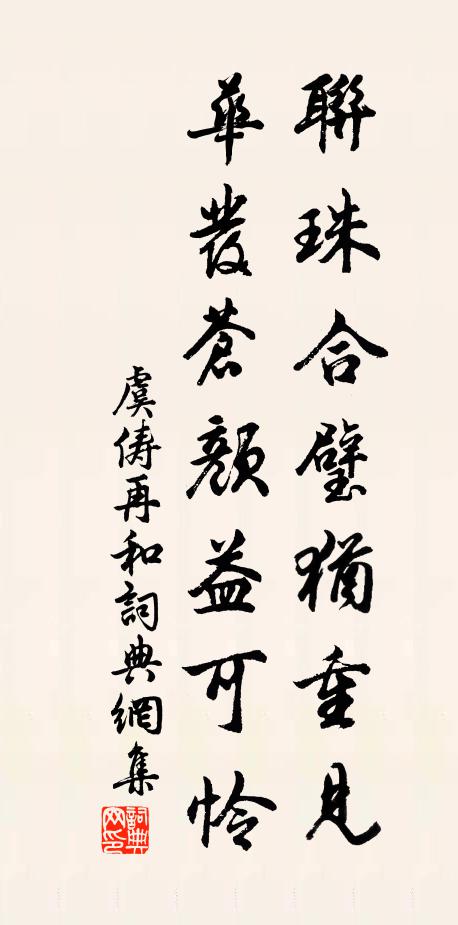 聯珠合璧猶重見
華發蒼顏益可憐
虞儔再和詞典網集
詞典网印